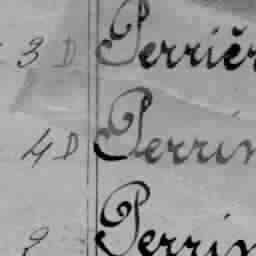 3 D Perrièr
4 D Perrin
Perrin